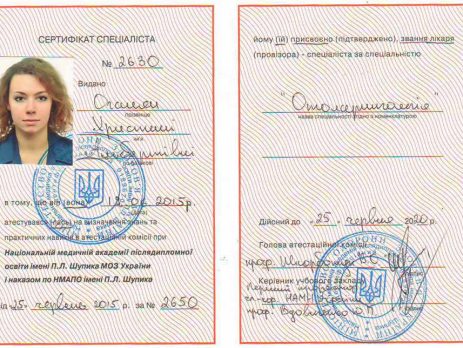 СЕРТИФІКАТ СПЕЦІАЛІСТА
№ 2630
Видано
прізвище
ім'я
в тому, що він (вона) 12.06 2015р.
(дата)
атестувався (лась) на визначення знань та
практичних навичок в атестаційній комісії при
Національній медичній академії післядипломної
освіти імені П.Л. Шупика МОЗ України
і наказом по НМАПО імені П.Л. Шупика
від 25 червня 2015 р. за № 2650
йому (їй) присвоєно (підтверджено), звання лікаря
(провізора) - спеціаліста за спеціальністю
"Отоларингологія"
назва спеціальності згідно з номенклатурою
Дійсний до 25 червня 2020 р.
Голова атестаційної комісії
проф.
Керівник учбового закладу
Перший проректор
проф. Вдовиченко Ю.П.